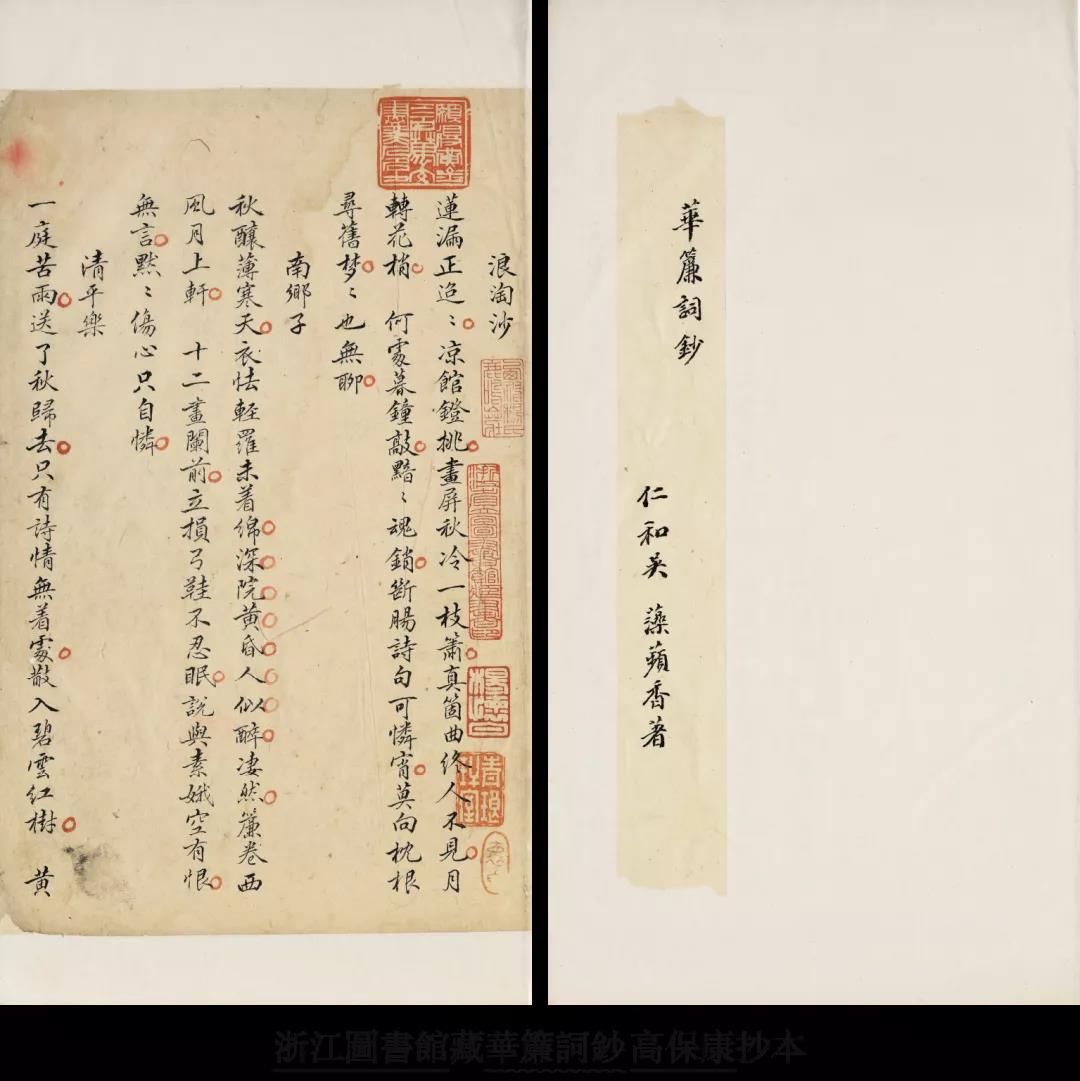 華簾詞鈔
仁和吳 藻蘋香著
浪淘沙
蓮漏正迢〻涼館鐙挑畫屏秋冷一枝簫真箇曲終人不見月
轉花梢 何處暮鐘敲黯〻魂銷斷腸詩句可憐宵莫向枕根
尋舊夢〻也無聊
南鄉子
秋釀薄寒天衣怯輕羅未着綿深院黃昏人似醉淒然簾卷西
風月上軒 十二畫闌前立損弓鞋不忍眠說與素娥空有恨
無言默〻傷心只自憐
清平樂
一庭苦雨送了秋歸去只有詩情無着處散入碧雲紅樹 黃
浙江圖書館藏華簾詞鈔高保康抄本